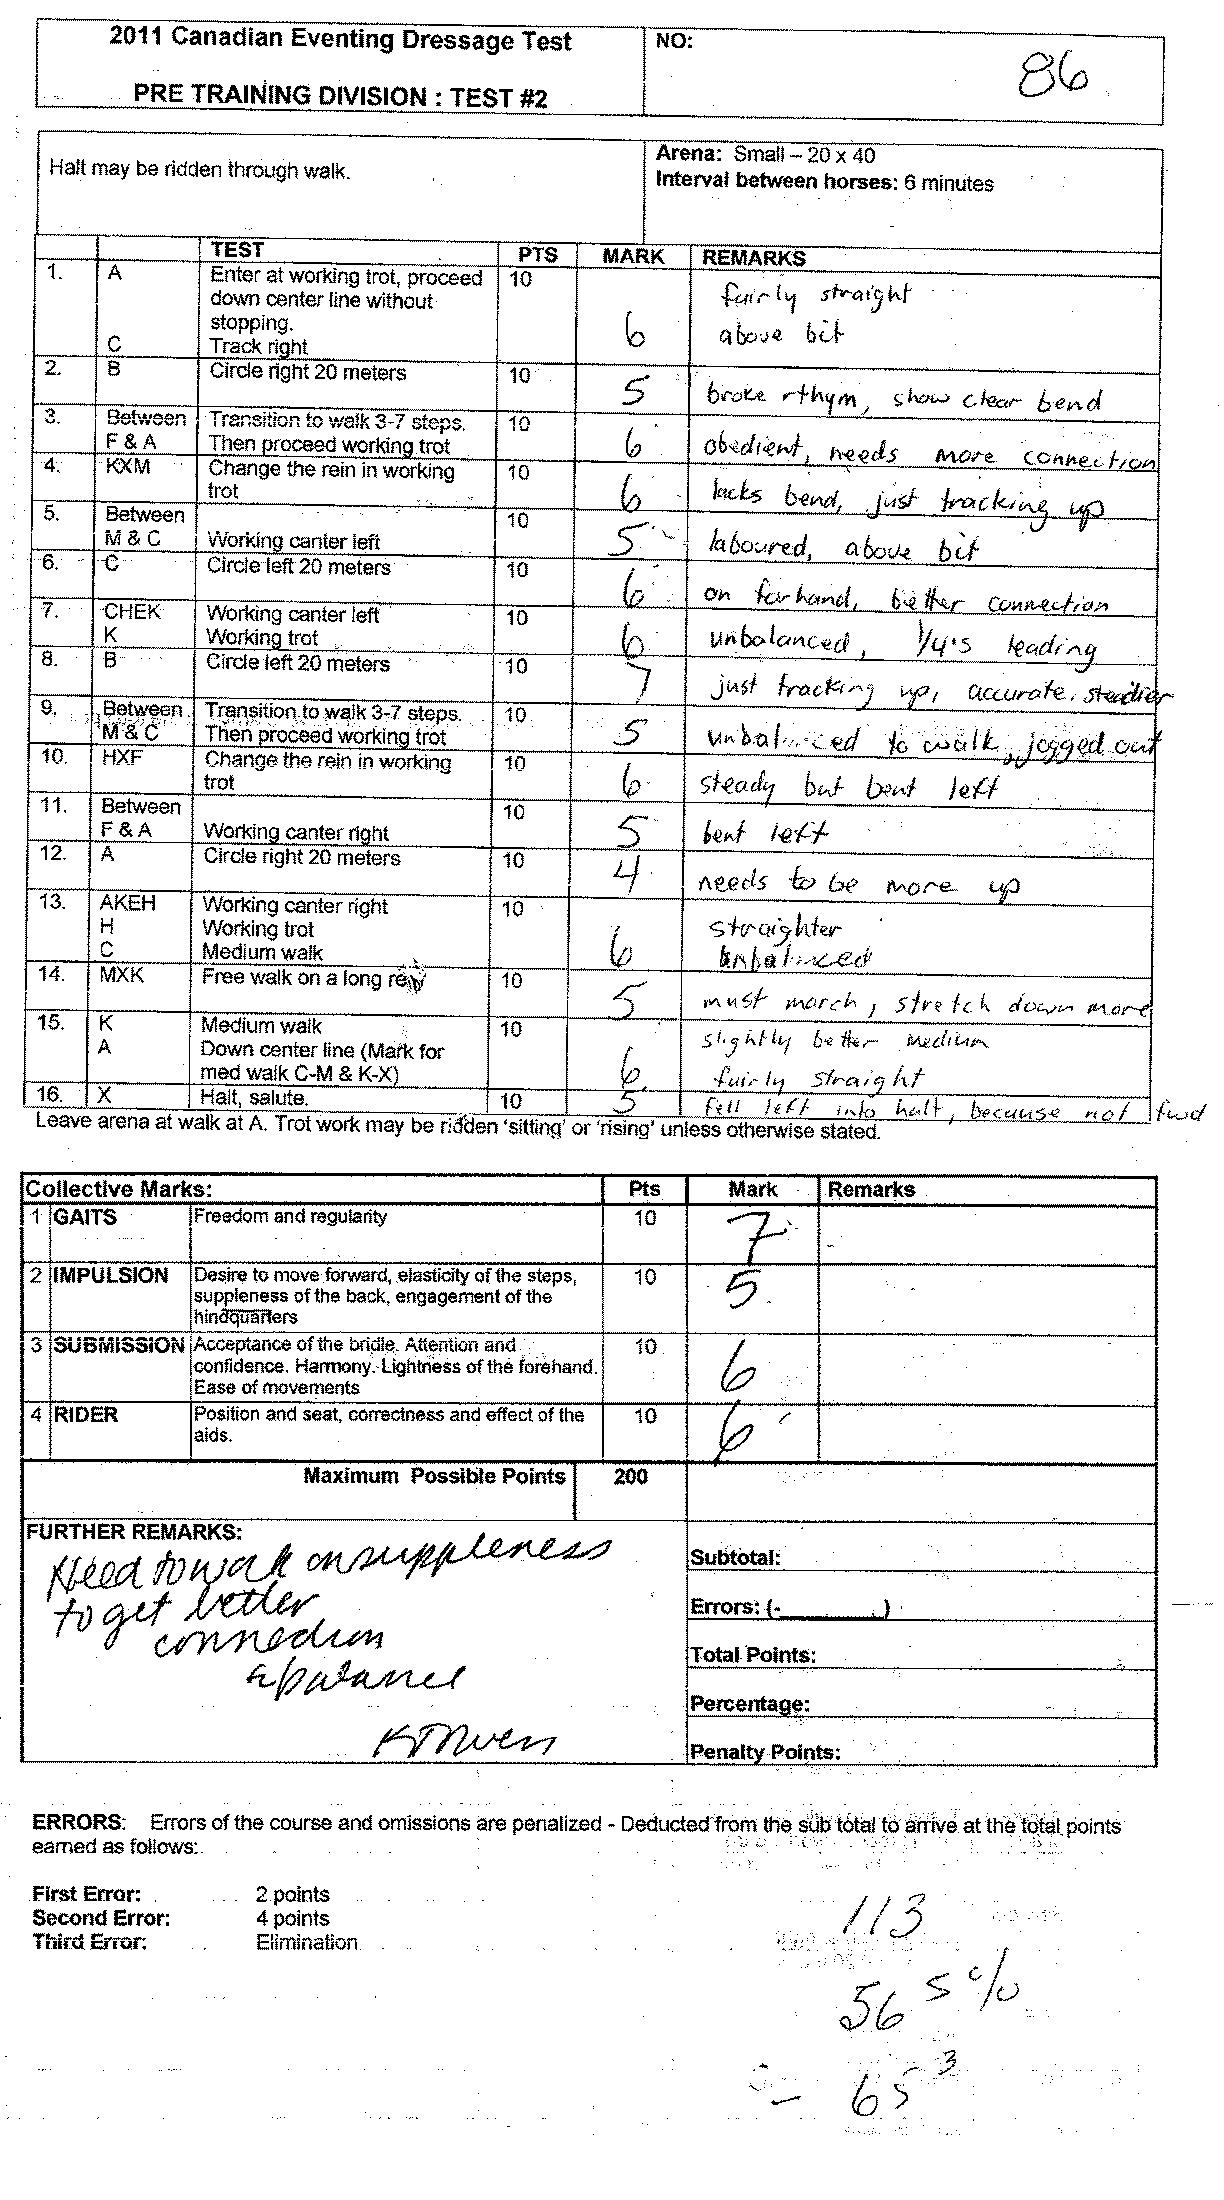 2011 Canadian Eventing Dressage Test
PRE TRAINING DIVISION : TEST #2
NO:
86
Halt may be ridden through walk.
Arena: Small – 20 x 40
Interval between horses: 6 minutes
TEST PTS MARK REMARKS
1. A Enter at working trot, proceed 10 fairly straight
down center line without
stopping.
C Track right 6 above bit
2. B Circle right 20 meters 10 5 broke rthym, show clear bend
3. Between Transition to walk 3-7 steps. 10
F & A Then proceed working trot 6 obedient, needs more connection
4. KXM Change the rein in working 10
trot 6 lacks bend, just tracking up
5. Between 10
M & C Working canter left 5 laboured, above bit
6. C Circle left 20 meters 10 6 on forhand, better connection
7. CHEK Working canter left 10
K Working trot 6 unbalanced, 1/4's leading
8. B Circle left 20 meters 10 7 just tracking up, accurate. steadier
9. Between Transition to walk 3-7 steps. 10
M & C Then proceed working trot 5 unbalanced to walk, jogged out
10. HXF Change the rein in working 10
trot 6 steady but bent left
11. Between 10
F & A Working canter right 5 bent left
12. A Circle right 20 meters 10 4 needs to be more up
13. AKEH Working canter right 10
H Working trot straighter
C Medium walk 6 unbalanced
14. MXK Free walk on a long rein 10 5 must march, stretch down more
15. K Medium walk 10 slightly better medium
A Down center line (Mark for
med walk C-M & K-X) 6 fairly straight
16. X Halt, salute. 10 5 fell left into halt, because not fwd
Leave arena at walk at A. Trot work may be ridden 'sitting' or 'rising' unless otherwise stated.
Collective Marks: Pts Mark Remarks
1 GAITS Freedom and regularity 10 7
2 IMPULSION Desire to move forward, elasticity of the steps, 10 5
suppleness of the back, engagement of the
hindquarters
3 SUBMISSION Acceptance of the bridle. Attention and 10 6
confidence. Harmony. Lightness of the forehand.
Ease of movements
4 RIDER Position and seat, correctness and effect of the 10 6
aids.
Maximum Possible Points 200
FURTHER REMARKS:
Need to work on suppleness
to get better
connection
& balance
Subtotal:
Errors: (- )
Total Points:
Percentage:
Penalty Points:
ERRORS: Errors of the course and omissions are penalized - Deducted from the sub total to arrive at the total points
earned as follows:
First Error: 2 points
Second Error: 4 points
Third Error: Elimination
113
56 5 %
- 65 3